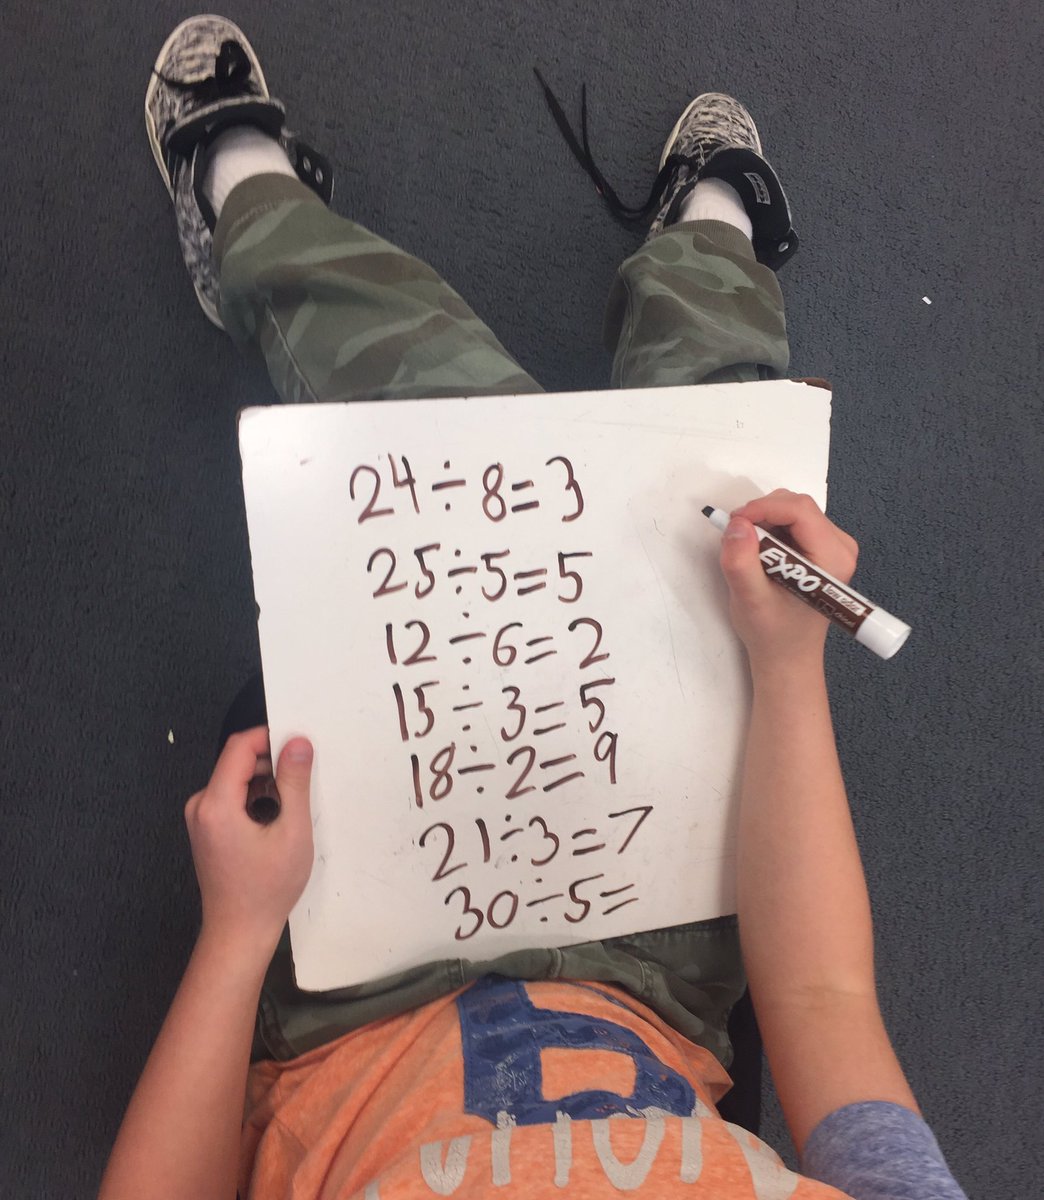 24÷8=3
25÷5=5
12÷6=2
15÷3=5
18÷2=9
21÷3=7
30÷5=
EXPO